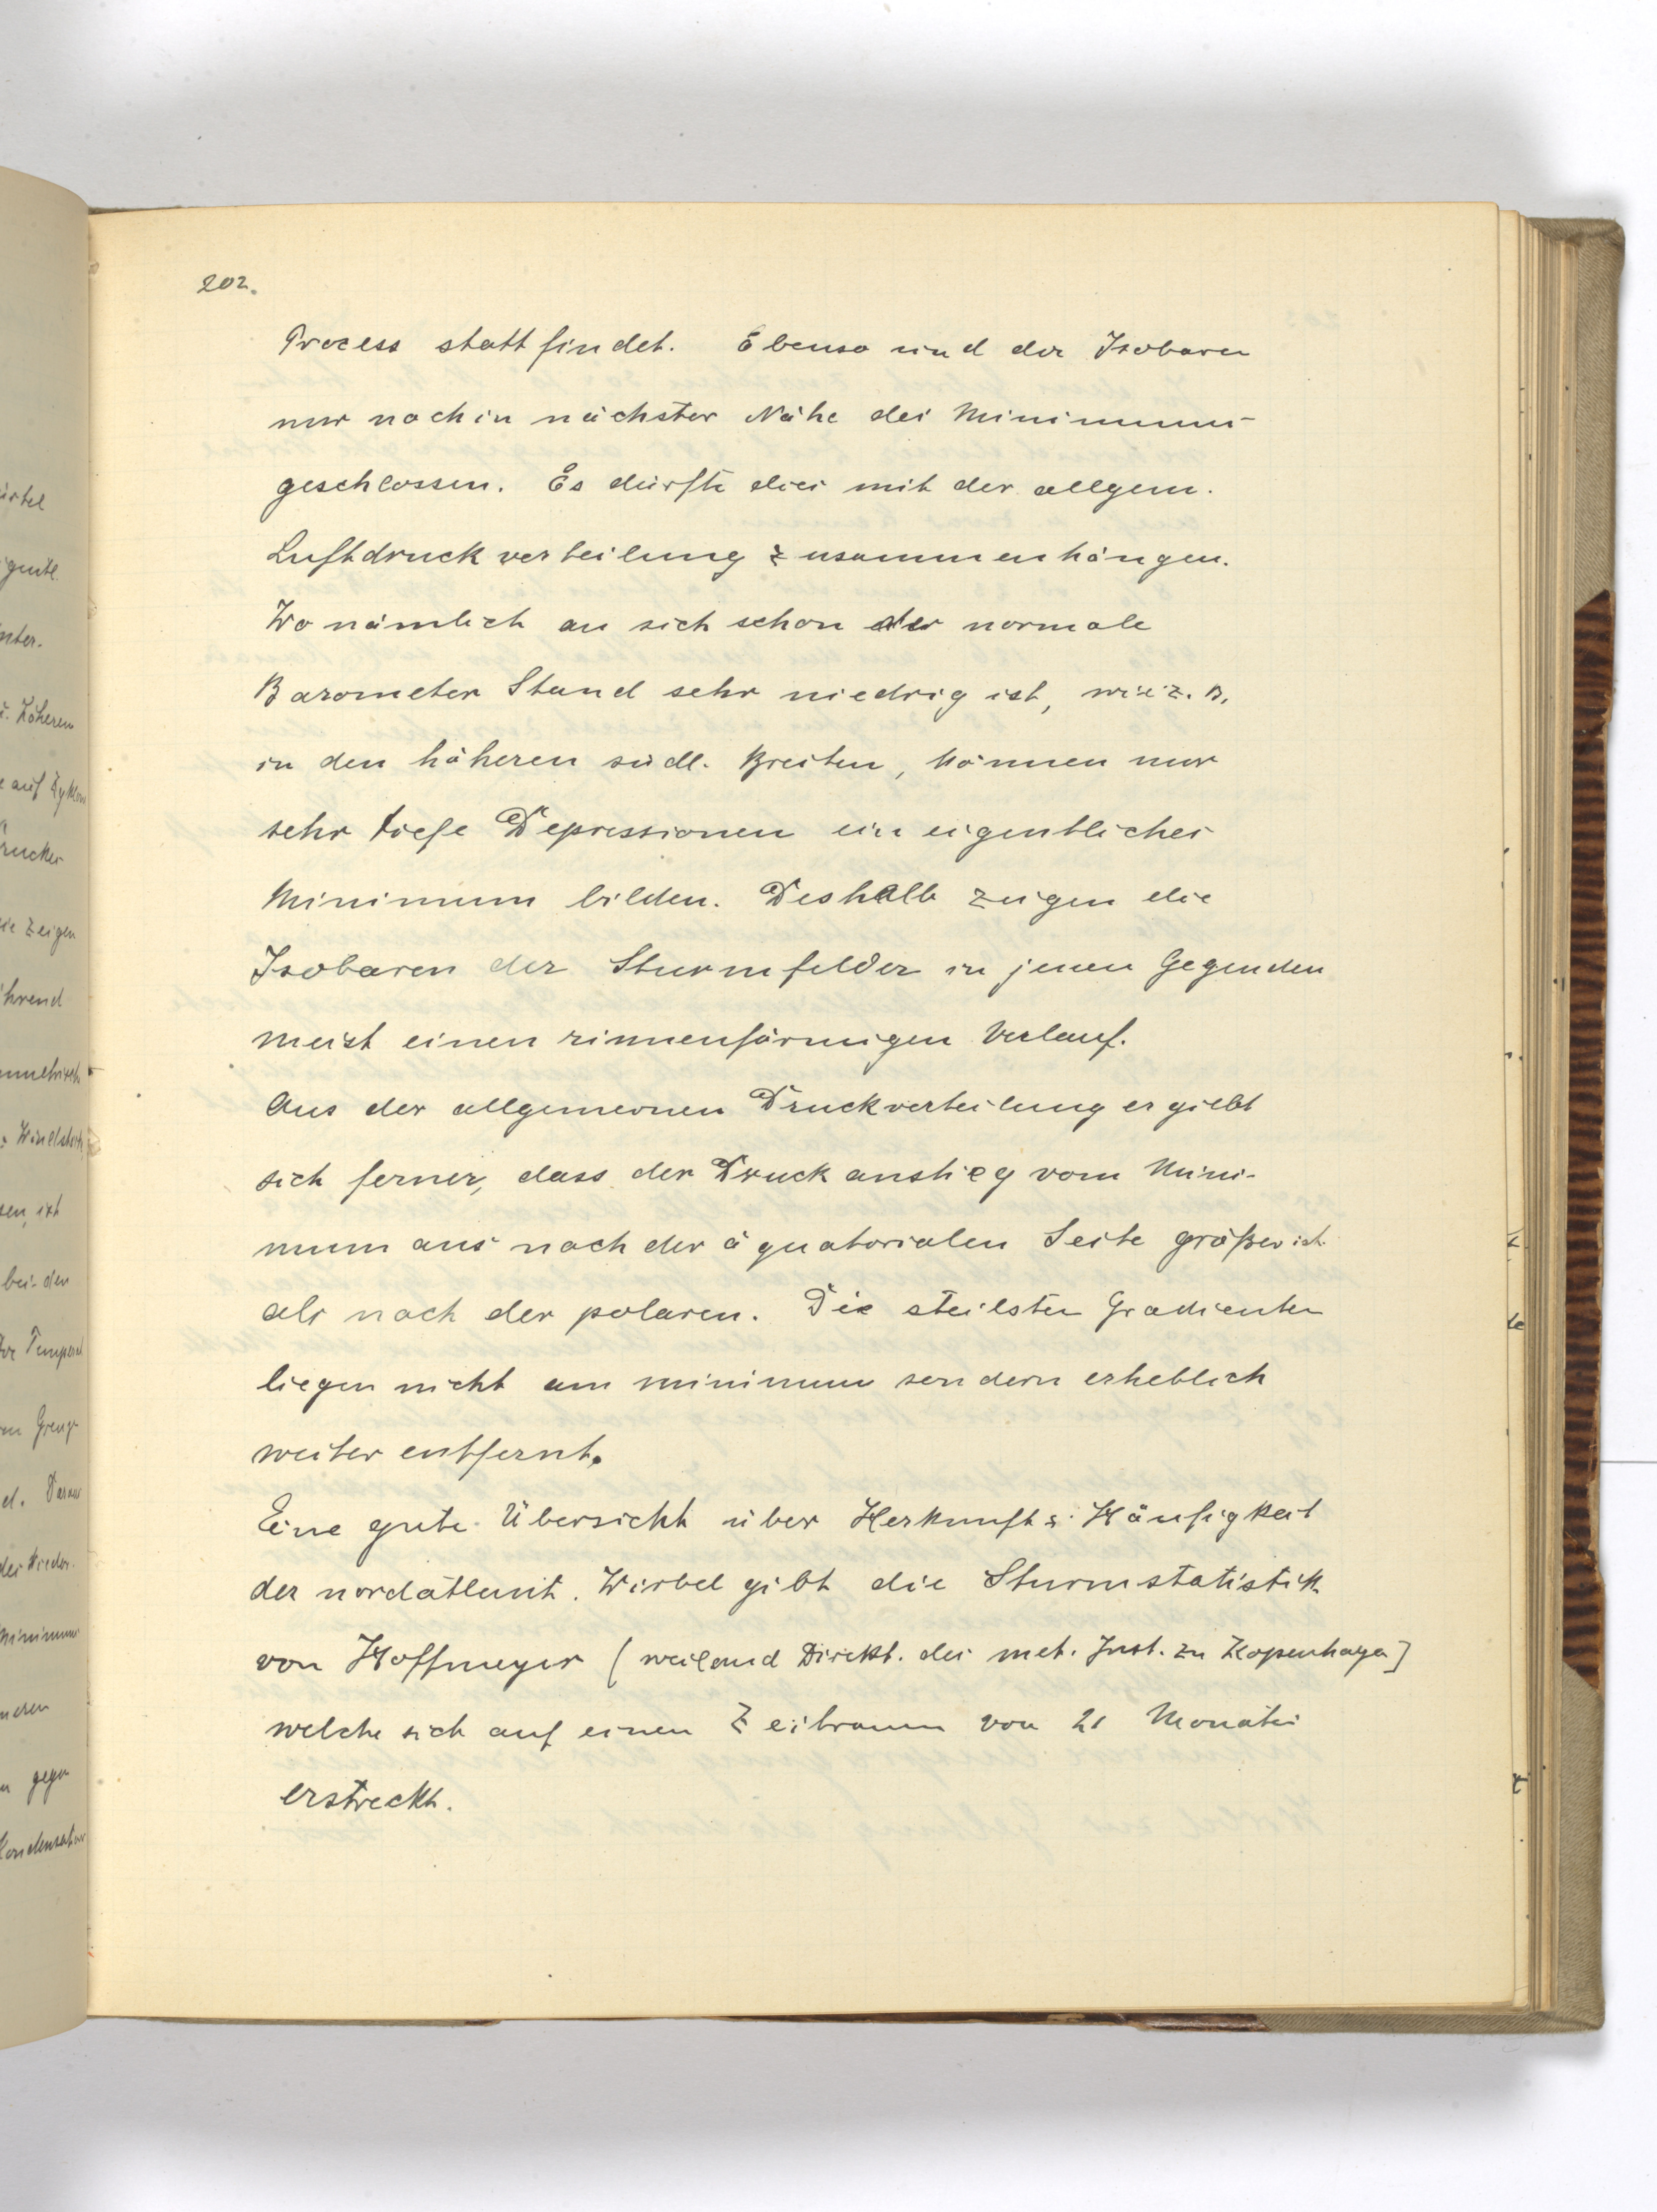 202.
Process statt findet. Ebenso sind der Isobaren
nur noch in nächster Nähe des Minimums
geschlossen. Es dürfte dies mit der allgem.
Luftdruckverteilung zusammenhängen.
Wo nämlich an sich schon der normale
Barometer Stand sehr niedrig ist, wie z. B.
in den höheren südl. Breiten, können nur
sehr tiefe Depressionen ein eigentliches
Minimum bilden. Deshalb zeigen die
Isobaren der Sturmfelder in jenen Gegenden
meist einen rinnenförmigen Verlauf.
Aus der allgemeinen Druckverteilung ergiebt
sich ferner, dass der Druckanstieg vom Mini-
mum aus nach der äquatorialen Seite größer ist
als nach der polaren. Die steilsten Gradienten
liegen nicht am minimum sondern erheblich
weiter entfernt.
Eine gute Übersicht über Herkunft & Häufigkeit
der nordatlant. Wirbel gibt die Sturmstatistik
von Hoffmeyer (weiland Direkt. des met. Inst. zu Kopenhagen]
welche sich auf einen Zeitraum von 21 Monaten
erstreckt.